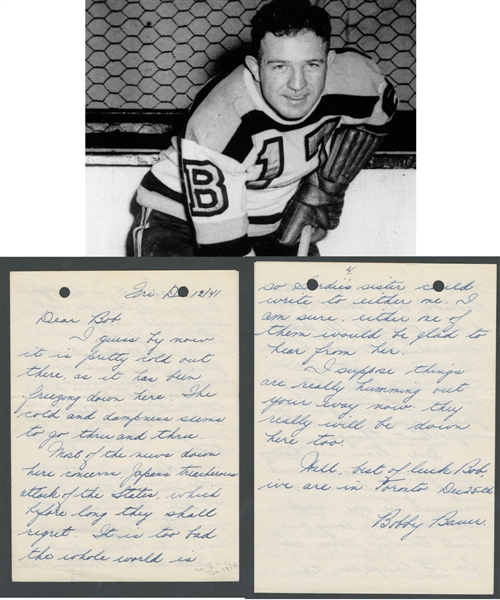 B
17
Fri. D 12/41
Dear Bob
I guess by now
it is pretty cold out
there, as it has been
freezing down here. The
cold and dampness seems
to go thru and thru.
Most of the news down
here concerns Japan's treacherous
attack of the States, which
before long they shall
regret. It is too bad
the whole world is
4
so Gordie's sister could
write to either me. I
am sure either me of
them would be glad to
hear from her.
I suppose things
are really humming out
your way now. they
really will be down
here too.
Well, best of luck Bob,
we are in Toronto Dec 25th
Bobby Bauer.